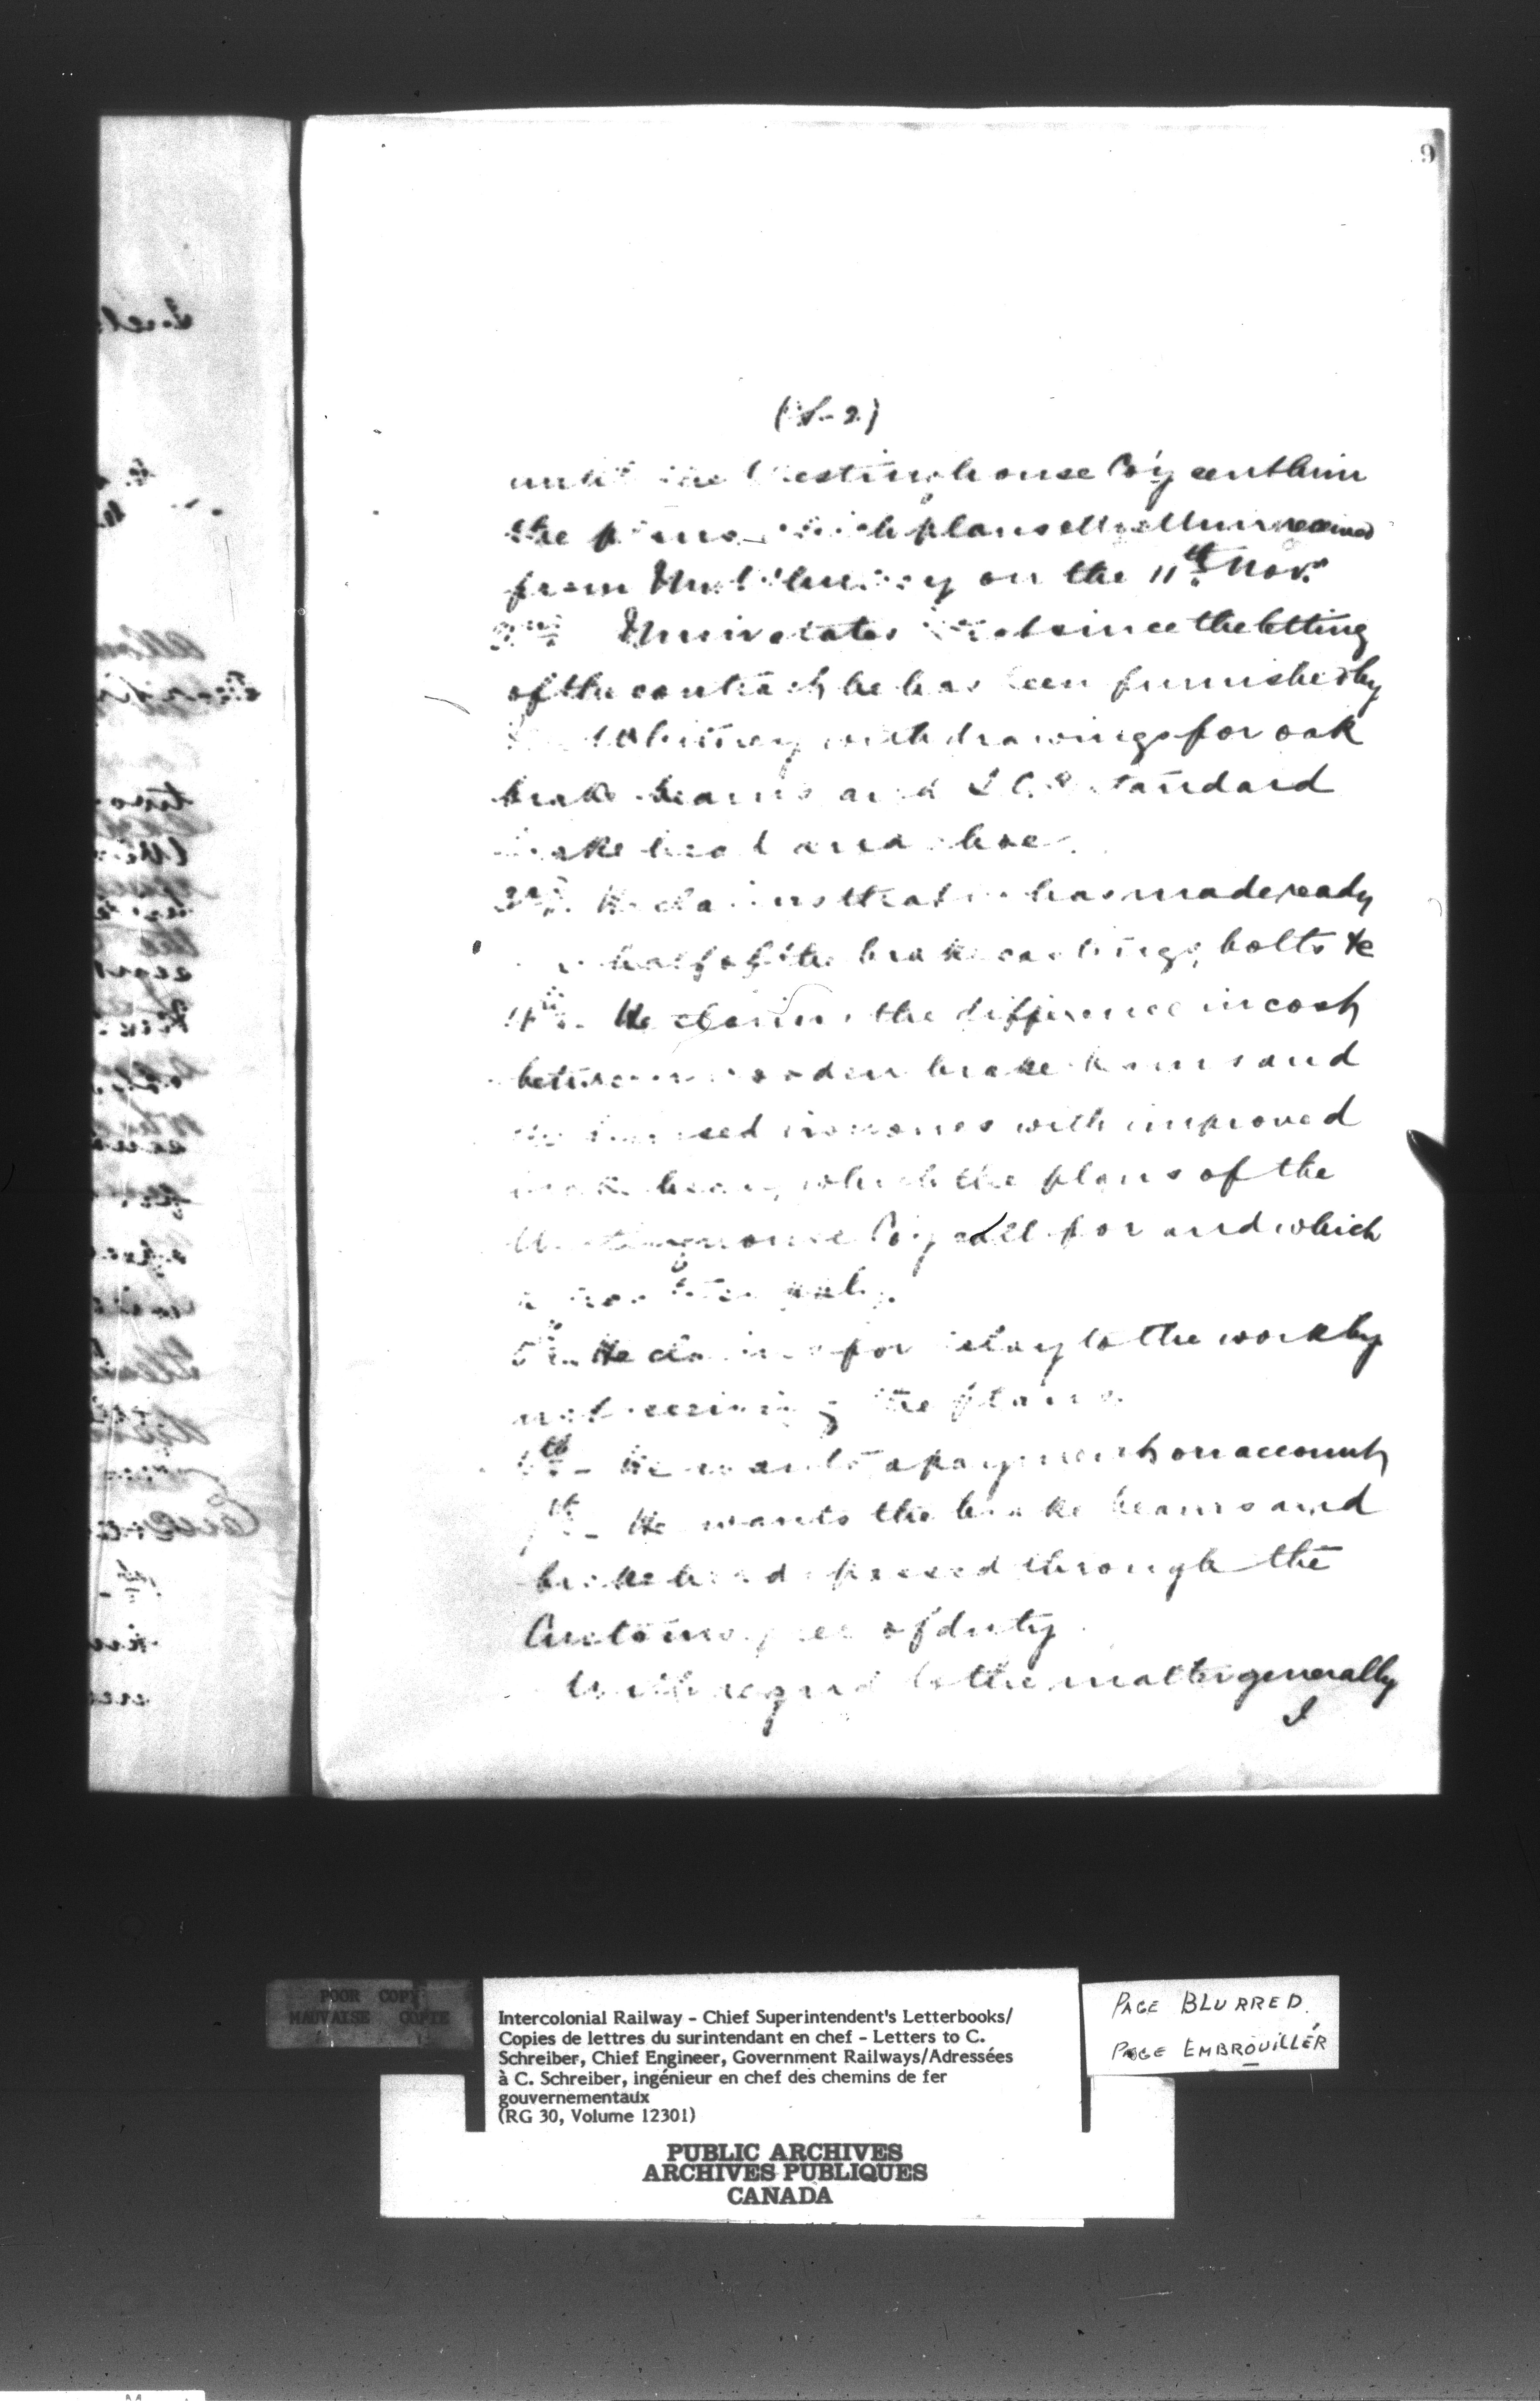 9
(S-2)
until the Westinghouse Co'y sent him
the plans which plans Mr Muir received
from Mr Whitney on the 11th Nov.
2nd Muir states that since the letting
of the contract he has been furnished by
Whitney with drawings for oak
brake beams and I.C.R. standard
brake head and shoe.
3rd. He claims that he has made ready
half of the brake castings, bolts &c
4th. He claims the difference in cost
between wooden brake beams and
trussed iron ones with improved
brake heads which the plans of the
Westinghouse Co'y call for and which

5th. He claims for delay to the work by
not receiving the plans.
6th - He wants a payment on account
7th - He wants the brake beams and
brake heads passed through the
Customs free of duty.
With regard to the matter generally
I
POOR COPY
MAUVAISE COPIE
Intercolonial Railway - Chief Superintendent's Letterbooks/
Copies de lettres du surintendant en chef - Letters to C.
Schreiber, Chief Engineer, Government Railways/Adressées
à C. Schreiber, ingénieur en chef des chemins de fer
gouvernementaux
(RG 30, Volume 12301)
PUBLIC ARCHIVES
ARCHIVES PUBLIQUES
CANADA
PAGE BLURRED.
PAGE EMBROUILLÉR